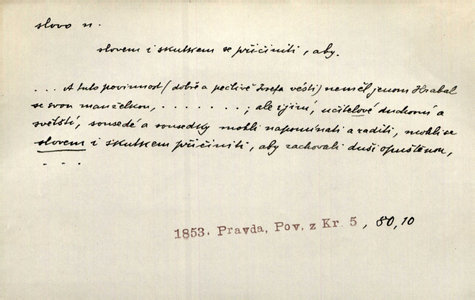 slovo n.
slovem i skutkem se přičiniti, aby.
... A tuto povinnost (dobře a pečlivě Josefa vésti) neměl jenom Hrabal
se svou manželkou, . . . . . . . ; ale i jiní, učitelové duchovní a
světští, sousedé a sousedky mohli napomínati a raditi, mohli se
slovem i skutkem přičiniti, aby zachovali duši opuštěnou,
. . .
1853. Pravda, Pov. z Kr. 5, 80,10